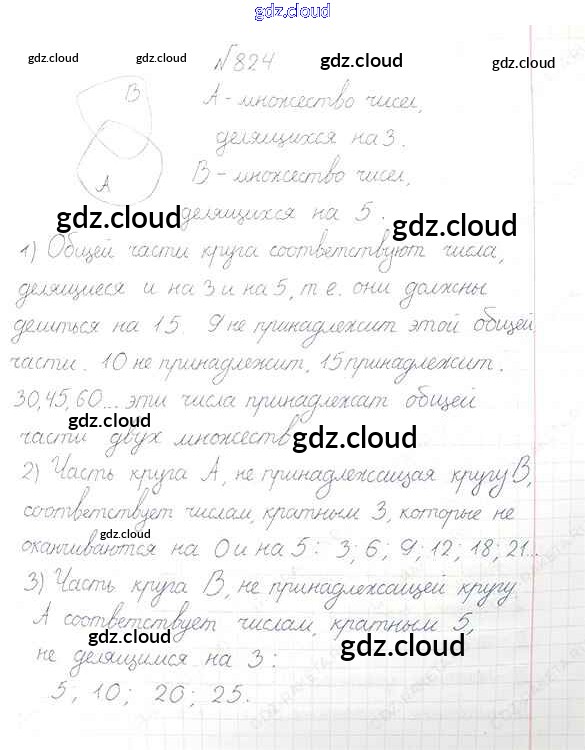 gdz.cloud
gdz.cloud
gdz.cloud
gdz.cloud
№824
B
A
A - множество чисел,
делящихся на 3.
B - множество чисел,
делящихся на 5.
gdz.cloud
gdz.cloud
1) Общей части круга соответствуют числа,
делящиеся и на 3 и на 5, т е. они должны
делиться на 15. 9 не принадлежит этой общей
части. 10 не принадлежит, 15 принадлежит.
30, 45, 60... эти числа принадлежат общей
части двух множеств
gdz.cloud
gdz.cloud
2) Часть круга A, не принадлежащая кругу B,
соответствует числам, кратным 3, которые не
оканчиваются на 0 и на 5: 3; 6; 9; 12; 18; 21...
gdz.cloud
3) Часть круга B, не принадлежащей кругу
A соответствует числам, кратным 5,
не делящимся на 3:
5, 10; 20; 25.
gdz.cloud
gdz.cloud